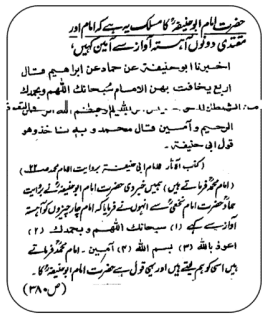 حضرت امام ابوحنیفہؒ کا مسلک یہ ہے کہ امام اور
مقتدی دونوں آہستہ آواز سے آمین کہیں،
اخبرنا ابوحنیفة عن حماد عن ابراهیم قال
اربع یخافت بهن الامام سبحانك اللهم وبحمدك
الرحیم وآمین قال محمد وبه ناخذ وهو
قول ابی حنیفة۔
(کتاب الآثار امام ابی حنیفة بروایت الامام محمد ص۲۲)
(امام محمدؒ فرماتے ہیں) ہمیں خبر دی حضرت امام ابوحنیفہؒ نے بروایت
حمادؒ حضرت امام نخعیؒ سے انہوں نے فرمایا کہ امام چار چیزوں کو آہستہ
آواز سے کہے (۱) سبحانك اللهم وبحمدك (۲)
اعوذ باللہ (۳) بسم اللہ (۴) آمین۔ امام محمدؒ فرماتے
ہیں اسی کو ہم لیتے ہیں اور یہی قول ہے حضرت امام ابوحنیفہؒ کا۔
(ص ۳۸۰)